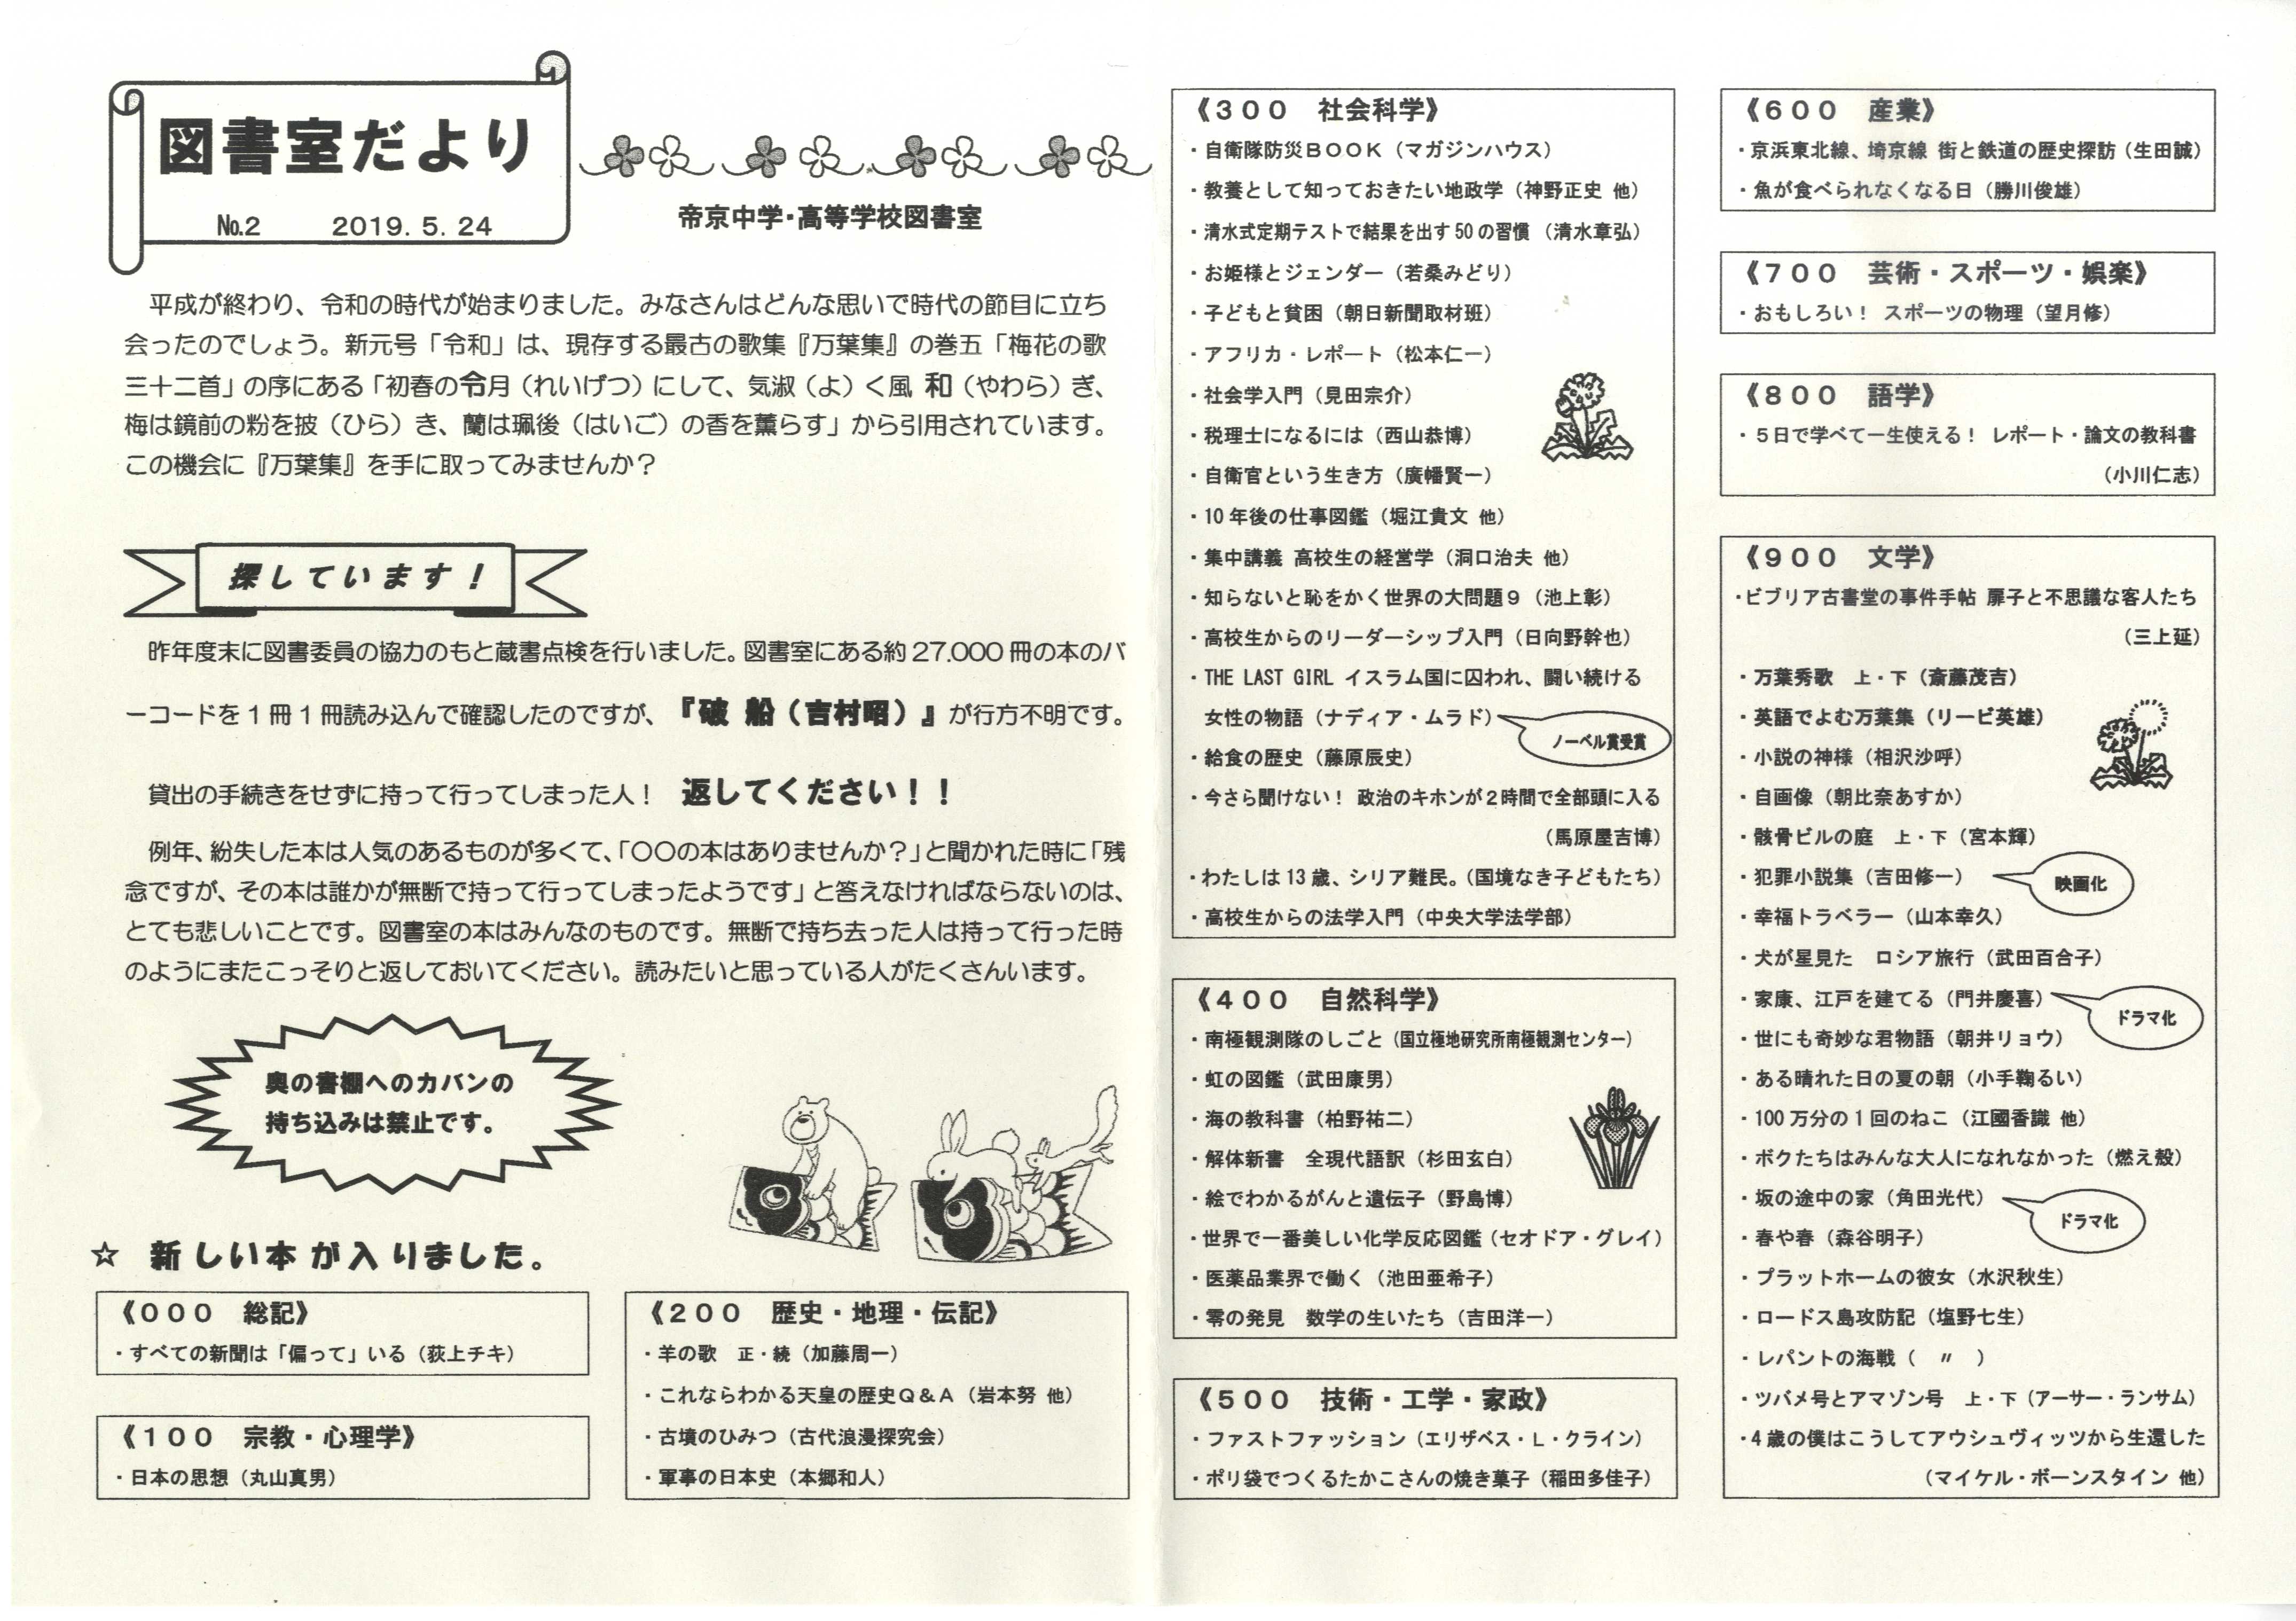 図書室だより
№2　2019. 5. 24
帝京中学・高等学校図書室
平成が終わり、令和の時代が始まりました。みなさんはどんな思いで時代の節目に立ち
会ったのでしょう。新元号「令和」は、現存する最古の歌集『万葉集』の巻五「梅花の歌
三十二首」の序にある「初春の令月（れいげつ）にして、気淑（よ）く風 和（やわら）ぎ、
梅は鏡前の粉を披（ひら）き、蘭は珮後（はいご）の香を薫らす」から引用されています。
この機会に『万葉集』を手に取ってみませんか？
探しています！
昨年度末に図書委員の協力のもと蔵書点検を行いました。図書室にある約 27.000 冊の本のバ
ーコードを 1 冊 1 冊読み込んで確認したのですが、『破 船（吉村昭）』が行方不明です。
貸出の手続きをせずに持って行ってしまった人！　返してください！！
例年、紛失した本は人気のあるものが多くて、「〇〇の本はありませんか？」と聞かれた時に「残
念ですが、その本は誰かが無断で持って行ってしまったようです」と答えなければならないのは、
とても悲しいことです。図書室の本はみんなのものです。無断で持ち去った人は持って行った時
のようにまたこっそりと返しておいてください。読みたいと思っている人がたくさんいます。
奥の書棚へのカバンの
持ち込みは禁止です。
☆　新しい本が入りました。
《０００　総記》
・すべての新聞は「偏って」いる（荻上チキ）
《１００　宗教・心理学》
・日本の思想（丸山真男）
《２００　歴史・地理・伝記》
・羊の歌　正・続（加藤周一）
・これならわかる天皇の歴史Ｑ＆Ａ（岩本努 他）
・古墳のひみつ（古代浪漫探究会）
・軍事の日本史（本郷和人）
《３００　社会科学》
・自衛隊防災ＢＯＯＫ（マガジンハウス）
・教養として知っておきたい地政学（神野正史 他）
・清水式定期テストで結果を出す 50 の習慣（清水章弘）
・お姫様とジェンダー（若桑みどり）
・子どもと貧困（朝日新聞取材班）
・アフリカ・レポート（松本仁一）
・社会学入門（見田宗介）
・税理士になるには（西山恭博）
・自衛官という生き方（廣幡賢一）
・10 年後の仕事図鑑（堀江貴文 他）
・集中講義 高校生の経営学（洞口治夫 他）
・知らないと恥をかく世界の大問題９（池上彰）
・高校生からのリーダーシップ入門（日向野幹也）
・THE LAST GIRL イスラム国に囚われ、闘い続ける
女性の物語（ナディア・ムラド）
ノーベル賞受賞
・給食の歴史（藤原辰史）
・今さら聞けない！ 政治のキホンが２時間で全部頭に入る
（馬原屋吉博）
・わたしは 13 歳、シリア難民。（国境なき子どもたち）
・高校生からの法学入門（中央大学法学部）
《４００　自然科学》
・南極観測隊のしごと（国立極地研究所南極観測センター）
・虹の図鑑（武田康男）
・海の教科書（柏野祐二）
・解体新書　全現代語訳（杉田玄白）
・絵でわかるがんと遺伝子（野島博）
・世界で一番美しい化学反応図鑑（セオドア・グレイ）
・医薬品業界で働く（池田亜希子）
・零の発見　数学の生いたち（吉田洋一）
《５００　技術・工学・家政》
・ファストファッション（エリザベス・Ｌ・クライン）
・ポリ袋でつくるたかこさんの焼き菓子（稲田多佳子）
《６００　産業》
・京浜東北線、埼京線 街と鉄道の歴史探訪（生田誠）
・魚が食べられなくなる日（勝川俊雄）
《７００　芸術・スポーツ・娯楽》
・おもしろい！ スポーツの物理（望月修）
《８００　語学》
・５日で学べて一生使える！ レポート・論文の教科書
（小川仁志）
《９００　文学》
・ビブリア古書堂の事件手帖 扉子と不思議な客人たち
（三上延）
・万葉秀歌　上・下（斎藤茂吉）
・英語でよむ万葉集（リービ英雄）
・小説の神様（相沢沙呼）
・自画像（朝比奈あすか）
・骸骨ビルの庭　上・下（宮本輝）
・犯罪小説集（吉田修一）
映画化
・幸福トラベラー（山本幸久）
・犬が星見た　ロシア旅行（武田百合子）
・家康、江戸を建てる（門井慶喜）
ドラマ化
・世にも奇妙な君物語（朝井リョウ）
・ある晴れた日の夏の朝（小手鞠るい）
・100 万分の 1 回のねこ（江國香識 他）
・ボクたちはみんな大人になれなかった（燃え殻）
・坂の途中の家（角田光代）
ドラマ化
・春や春（森谷明子）
・プラットホームの彼女（水沢秋生）
・ロードス島攻防記（塩野七生）
・レパントの海戦（　〃　）
・ツバメ号とアマゾン号　上・下（アーサー・ランサム）
・４歳の僕はこうしてアウシュヴィッツから生還した
（マイケル・ボーンスタイン 他）